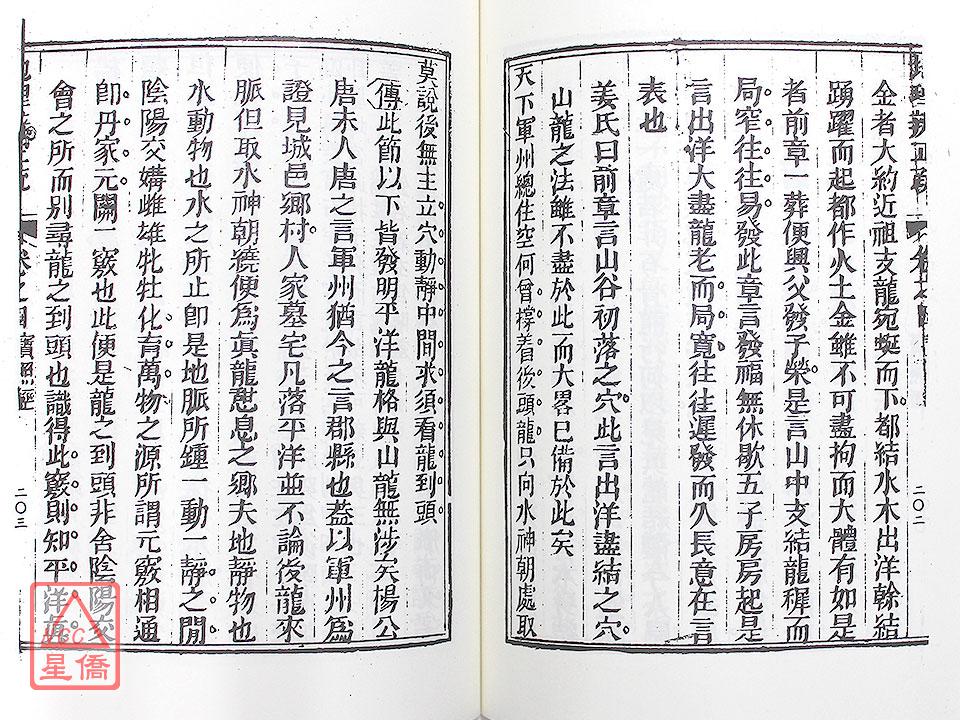 金者大約近祖支龍宛蜒而下都結水木出洋榦結
踴躍而起都作火土金雖不可盡拘而大體有如是
者前章一葬便興父發子榮是言山中支結龍穉而
局窄往往易發此章言發福無休歇五子房房起是
言出洋大盡龍老而局寛往往遲發而久長意在言
表也
姜氏曰前章言山谷初落之穴此言出洋盡結之穴
山龍之法雖不盡於此而大畧已備於此矣
天下軍州總住空何曾撐着後頭龍只向水神朝處取
二〇二
莫說後無主立穴動靜中間求須看龍到頭
傳此節以下皆發明平洋龍格與山龍無涉矣楊公
唐末人唐之言軍州猶今之言郡縣也葢以軍州爲
證見城邑鄉村人家墓宅凡落平洋並不論後龍來
脈但取水神朝繞便爲眞龍憇息之鄉夫地靜物也
水動物也水之所止卽是地脈所鍾一動一靜之間
陰陽交媾雌雄牝牡化育萬物之源所謂元竅相通
卽丹家元關一竅也此便是龍之到頭非舍陰陽交
會之所而别尋龍之到頭也識得此竅則知平洋眞
卷之四寶照經
二〇三
NCC
星僑